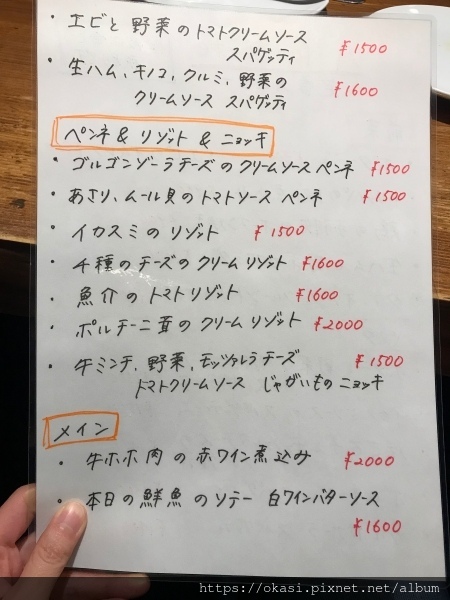 ・エビと野菜のトマトクリームソース
スパゲッティ ¥1500
・生ハム、キノコ、クルミ、野菜の
クリームソース スパゲッティ ¥1600
ペンネ & リゾット & ニョッキ
・ゴルゴンゾーラチーズのクリームソース ペンネ ¥1500
・あさり、ムール貝のトマトソース ペンネ ¥1500
・イカスミのリゾット ¥1500
・4種のチーズのクリームリゾット ¥1600
・魚介のトマトリゾット ¥1600
・ポルチーニ茸のクリームリゾット ¥2000
・牛ミンチ、野菜、モッツァレラチーズ ¥1500
トマトクリームソース じゃがいものニョッキ
メイン
・牛ホホ肉の赤ワイン煮込み ¥2000
・本日の鮮魚のソテー 白ワインバターソース
¥1600
https://okasi.pixnet.net/album